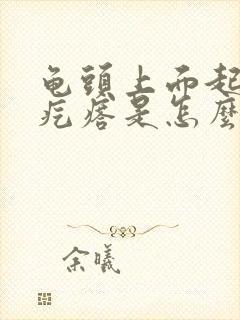 龟頭上而起
疙瘩是怎麽
余曦